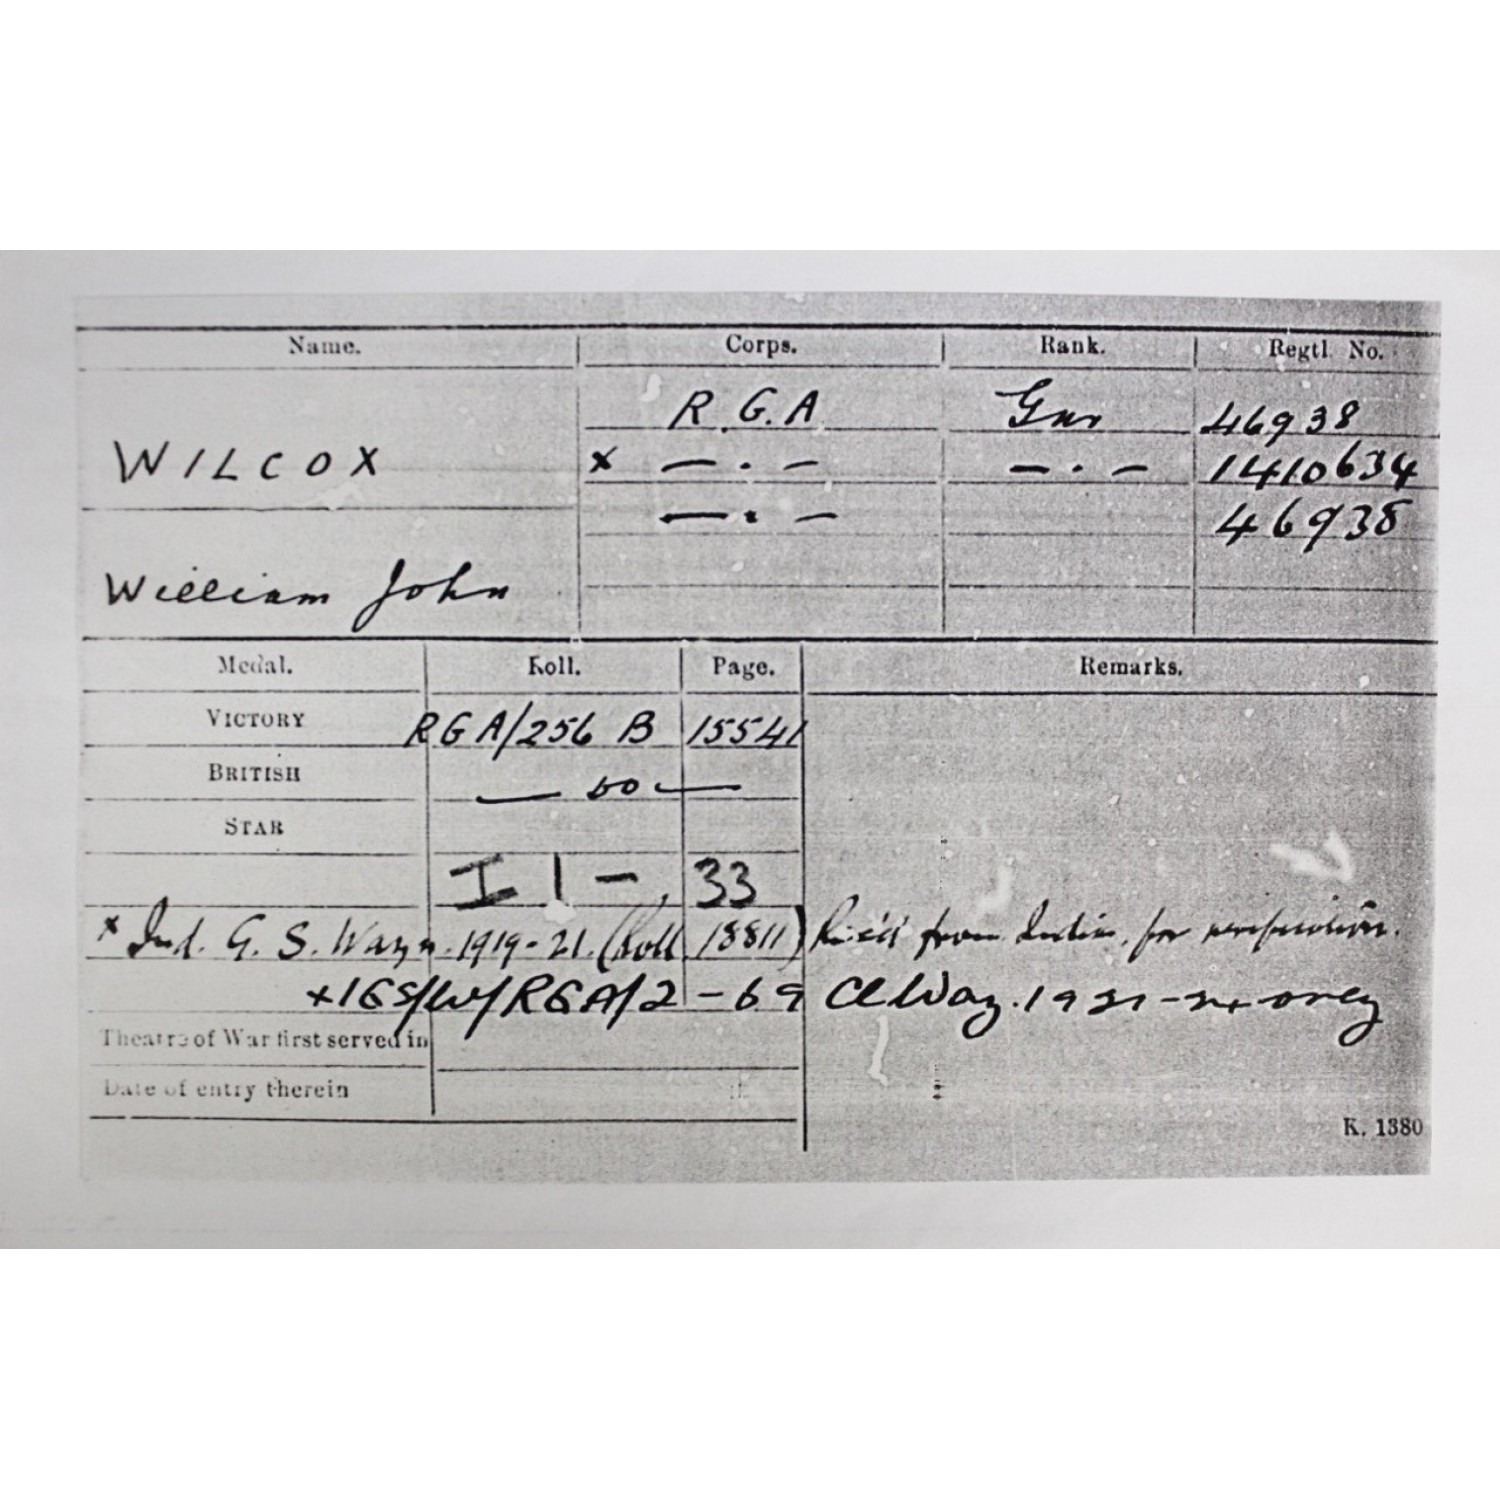 Name. Corps. Rank. Regtl. No.
R.G.A Gnr 46938
WILCOX x — . — — . — 1410634
— . — 46938
William John
Medal. Roll. Page. Remarks.
VICTORY RGA/256 B 15541
BRITISH — DO —
STAR
I 1 - 33
x Ind. G. S. Wazn. 1919-21. (Roll 18811) Rec'd from India for verification.
+IGS/W/RGA/2 - 69 Cl Waz. 1921-24 only
Theatre of War first served in
Date of entry therein
K. 1380